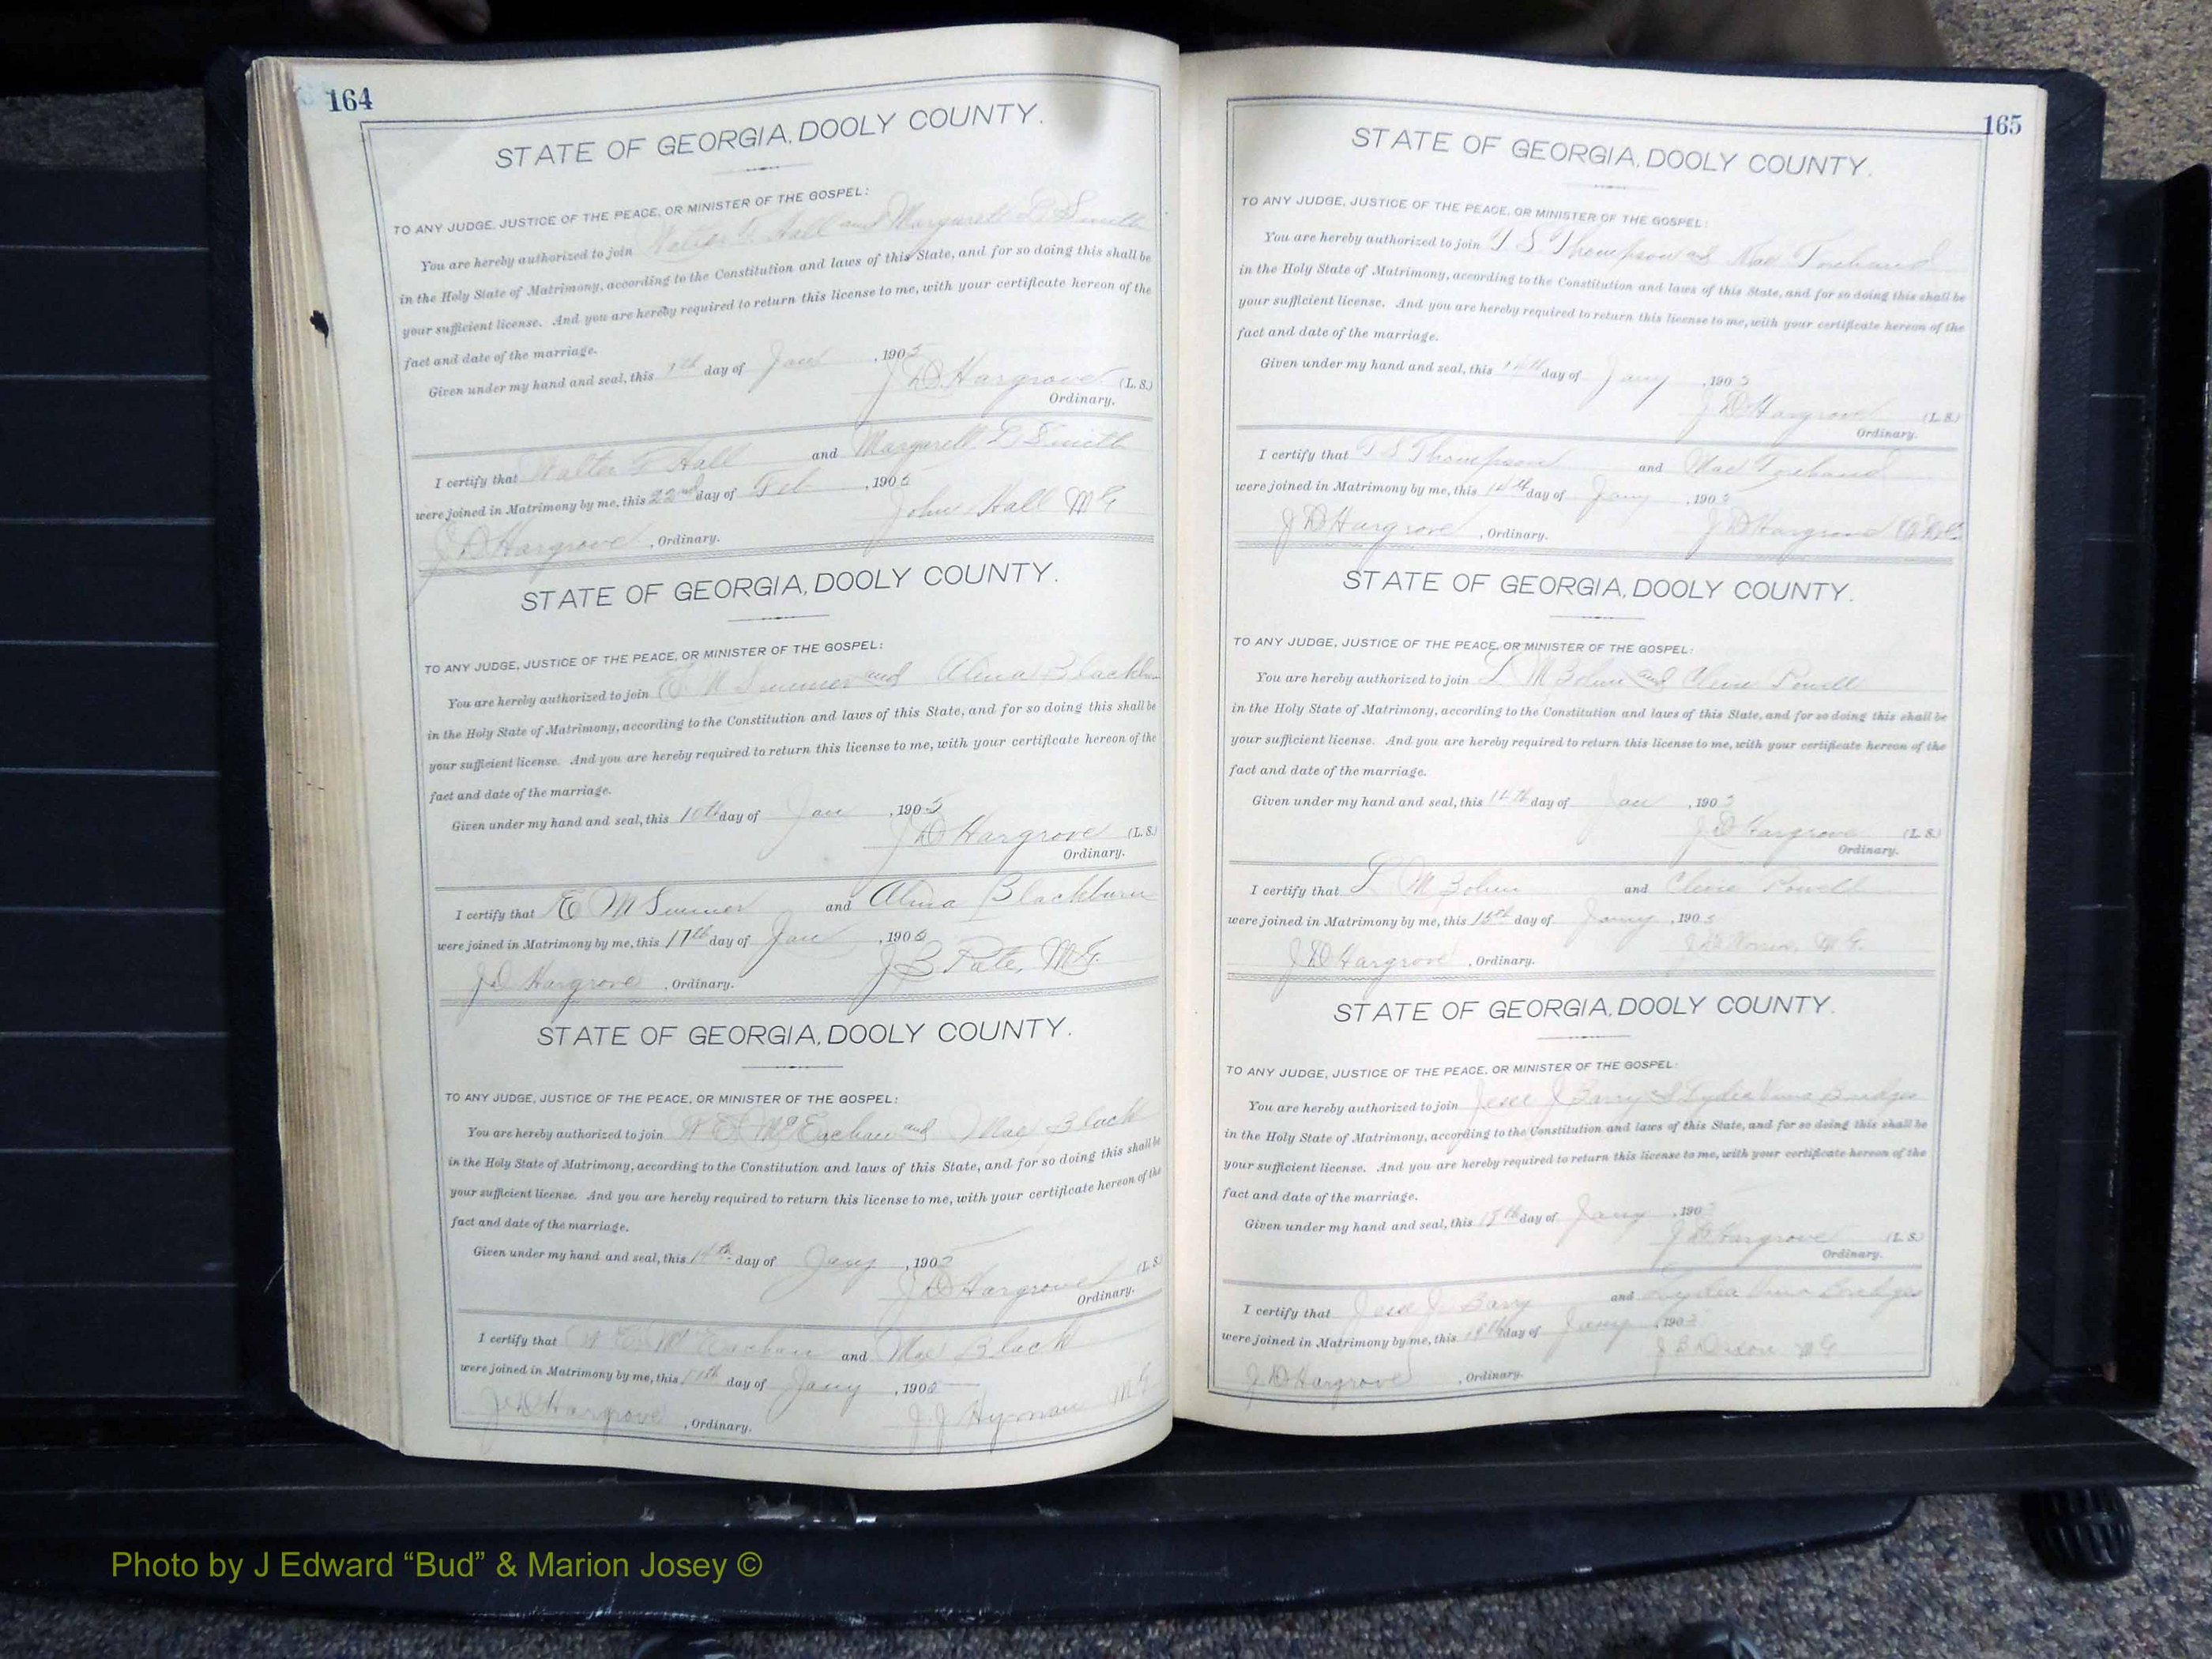 164
STATE OF GEORGIA, DOOLY COUNTY.
TO ANY JUDGE, JUSTICE OF THE PEACE, OR MINISTER OF THE GOSPEL:
You are hereby authorized to join Walter F. Hall and Margarett L. Smith
in the Holy State of Matrimony, according to the Constitution and laws of this State, and for so doing this shall be
your sufficient license. And you are hereby required to return this license to me, with your certificate hereon of the
fact and date of the marriage.
Given under my hand and seal, this day of Jan , 1905
J D Hargrove (L. S.)
Ordinary.
I certify that Walter F Hall and Margarett L Smith
were joined in Matrimony by me, this 22nd day of Feb , 1905
John Hall MG
J D Hargrove , Ordinary.
STATE OF GEORGIA, DOOLY COUNTY.
TO ANY JUDGE, JUSTICE OF THE PEACE, OR MINISTER OF THE GOSPEL:
You are hereby authorized to join E M Sumner and Alma Blackburn
in the Holy State of Matrimony, according to the Constitution and laws of this State, and for so doing this shall be
your sufficient license. And you are hereby required to return this license to me, with your certificate hereon of the
fact and date of the marriage.
Given under my hand and seal, this 10th day of Jan , 1905
J D Hargrove (L. S.)
Ordinary.
I certify that E M Sumner and Alma Blackburn
were joined in Matrimony by me, this 17th day of Jan , 1905
J B Pate, MG.
J D Hargrove , Ordinary.
STATE OF GEORGIA, DOOLY COUNTY.
TO ANY JUDGE, JUSTICE OF THE PEACE, OR MINISTER OF THE GOSPEL:
You are hereby authorized to join W E McEachan and Mae Black
in the Holy State of Matrimony, according to the Constitution and laws of this State, and for so doing this shall be
your sufficient license. And you are hereby required to return this license to me, with your certificate hereon of the
fact and date of the marriage.
Given under my hand and seal, this 14th day of Jany , 190
J D Hargrove (L. S.)
Ordinary.
I certify that W E McEachan and Mae Black
were joined in Matrimony by me, this day of Jany , 190
J J Hyman MG
J D Hargrove , Ordinary.
165
STATE OF GEORGIA, DOOLY COUNTY.
TO ANY JUDGE, JUSTICE OF THE PEACE, OR MINISTER OF THE GOSPEL:
You are hereby authorized to join T S Thompson and Mae
in the Holy State of Matrimony, according to the Constitution and laws of this State, and for so doing this shall be
your sufficient license. And you are hereby required to return this license to me, with your certificate hereon of the
fact and date of the marriage.
Given under my hand and seal, this 14th day of Jany , 1905
J D Hargrove (L. S.)
Ordinary.
I certify that T S Thompson and Mae
were joined in Matrimony by me, this 14th day of Jany , 1905
J D Hargrove
J D Hargrove , Ordinary.
STATE OF GEORGIA, DOOLY COUNTY.
TO ANY JUDGE, JUSTICE OF THE PEACE, OR MINISTER OF THE GOSPEL:
You are hereby authorized to join L M and Powell
in the Holy State of Matrimony, according to the Constitution and laws of this State, and for so doing this shall be
your sufficient license. And you are hereby required to return this license to me, with your certificate hereon of the
fact and date of the marriage.
Given under my hand and seal, this 14th day of Jan , 1905
J D Hargrove (L. S.)
Ordinary.
I certify that L M and Powell
were joined in Matrimony by me, this 15th day of Jany , 1905
M G.
J D Hargrove , Ordinary.
STATE OF GEORGIA, DOOLY COUNTY.
TO ANY JUDGE, JUSTICE OF THE PEACE, OR MINISTER OF THE GOSPEL:
You are hereby authorized to join Jesse J Barry & Lydia Bridges
in the Holy State of Matrimony, according to the Constitution and laws of this State, and for so doing this shall be
your sufficient license. And you are hereby required to return this license to me, with your certificate hereon of the
fact and date of the marriage.
Given under my hand and seal, this 18th day of Jany , 190
J D Hargrove (L. S.)
Ordinary.
I certify that Jesse J Barry and Lydia Bridges
were joined in Matrimony by me, this day of Jany , 190
M G
J D Hargrove , Ordinary.
Photo by J Edward “Bud” & Marion Josey ©